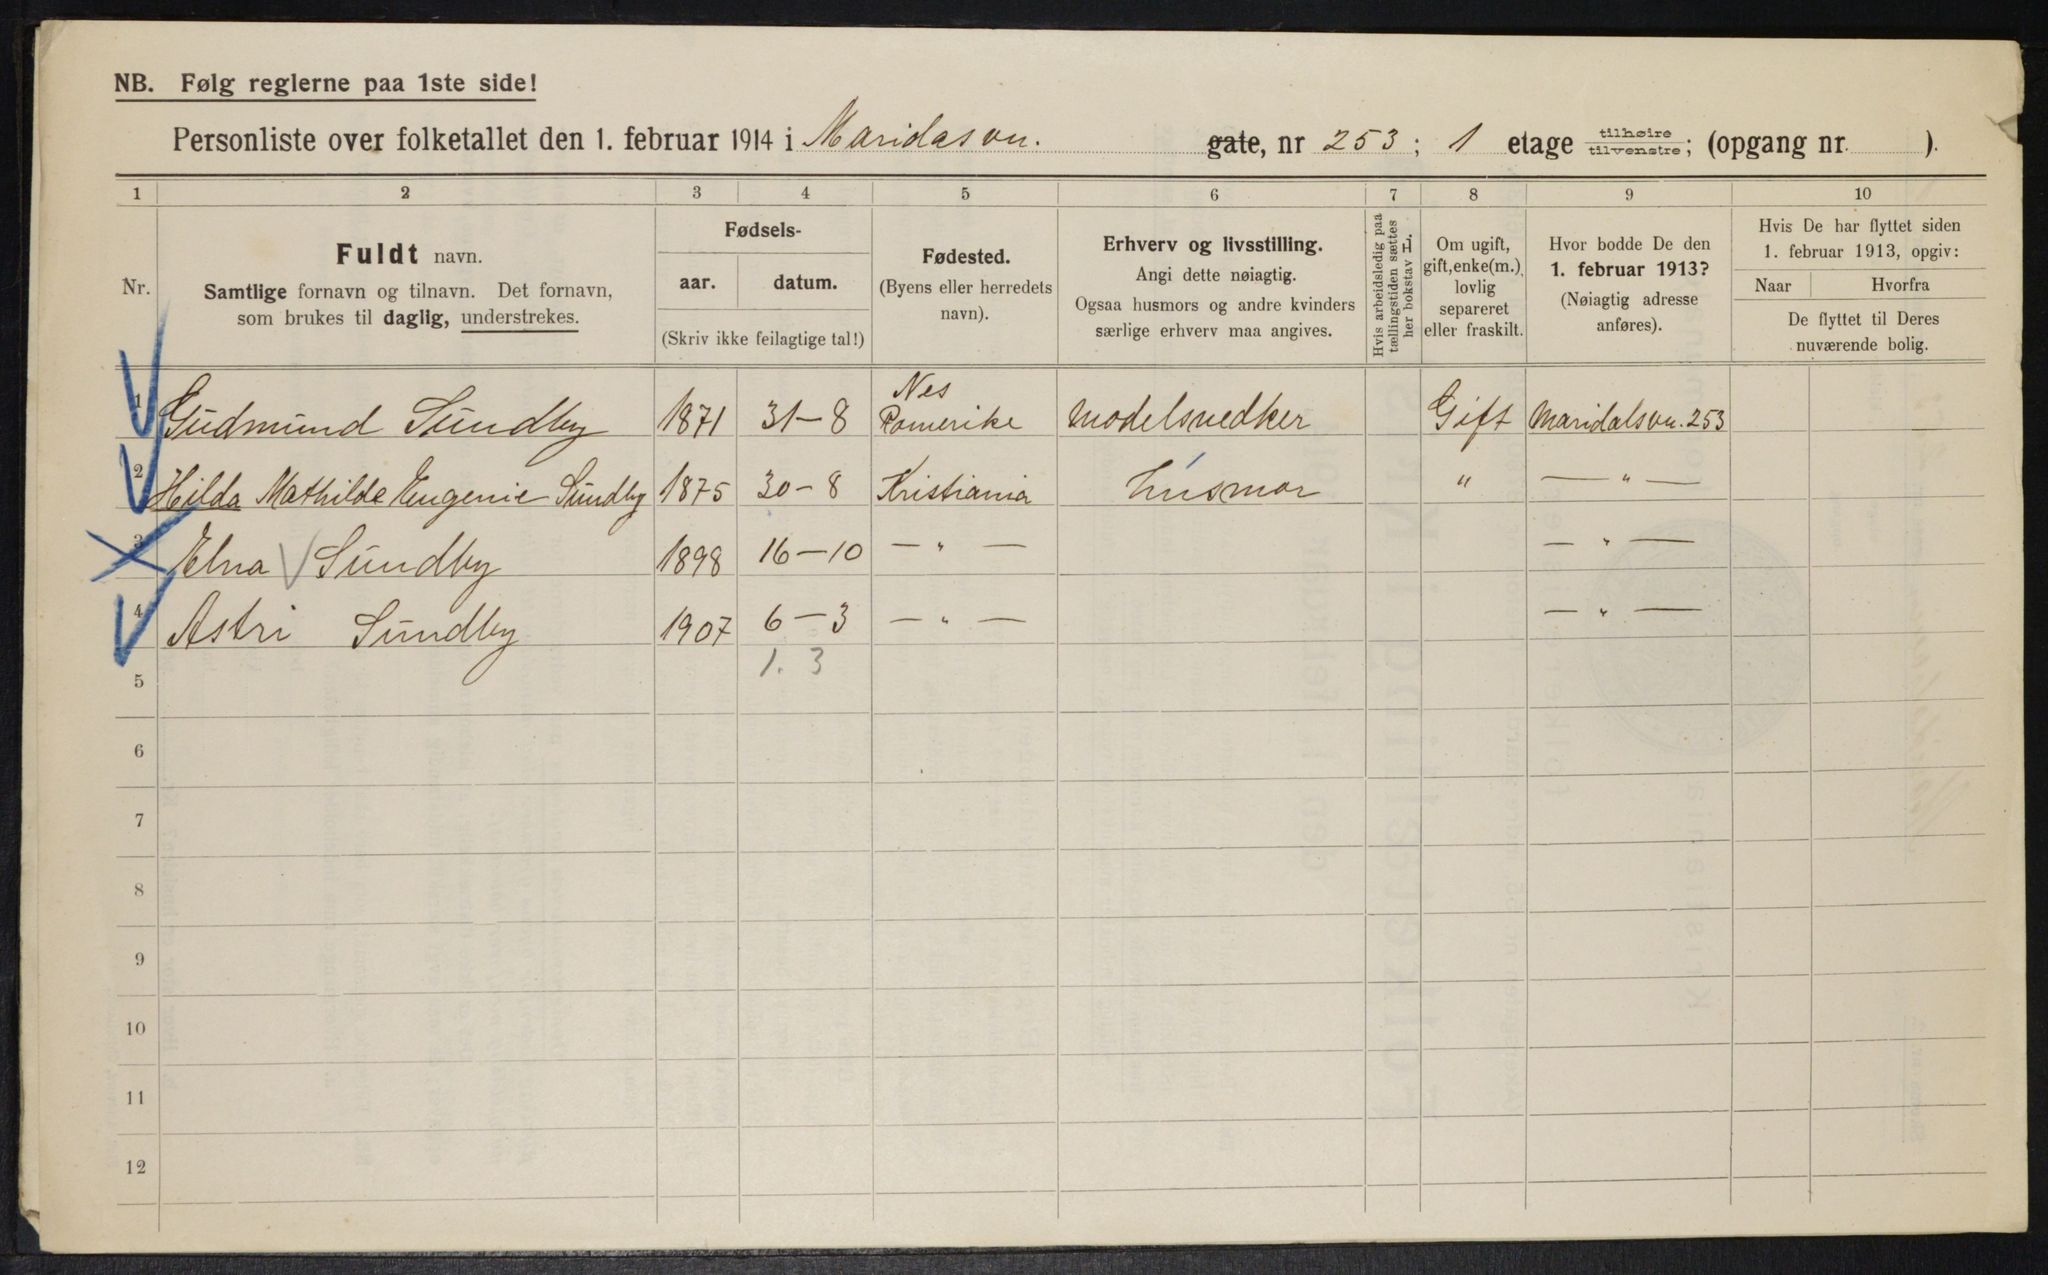 NB. Følg reglerne paa 1ste side!
Personliste over folketallet den 1. februar 1914 i Maridasvn. gate, nr 253; 1 etage tilhøire/tilvenstre; (opgang nr. ).
1 2 3 4 5 6 7 8 9 10
Nr.
Fuldt navn.
Samtlige fornavn og tilnavn. Det fornavn,
som brukes til daglig, understrekes.
Fødsels-
aar. datum.
(Skriv ikke feilagtige tal!)
Fødested.
(Byens eller herredets
navn).
Erhverv og livsstilling.
Angi dette nøiagtig.
Ogsaa husmors og andre kvinders
særlige erhverv maa angives.
Hvis arbeidsledig paa
tællingstiden sættes
her bokstav L.
Om ugift,
gift, enke(m.),
lovlig
separeret
eller fraskilt.
Hvor bodde De den
1. februar 1913?
(Nøiagtig adresse
anføres).
Hvis De har flyttet siden
1. februar 1913, opgiv:
Naar Hvorfra
De flyttet til Deres
nuværende bolig.
1 Gudmund Sundby 1871 31-8 Nes Romerike Modelsnedker Gift Maridalsvn. 253
2 Hilda Mathilde Eugenie Sundby 1875 30-8 Kristiania Husmor " — " —
3 Elna Sundby 1898 16-10 — " — — " —
4 Astri Sundby 1907 6-3 — " — — " —
1. 3
5
6
7
8
9
10
11
12